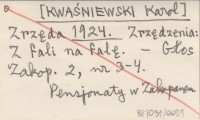 [KWAŚNIEWSKI Karol]
Zrzęda 1924. Zrzędzenia:
Z fali na falę. – Głos
Zakop. 2, nr 3-4.
Pensjonaty w Zakopanem